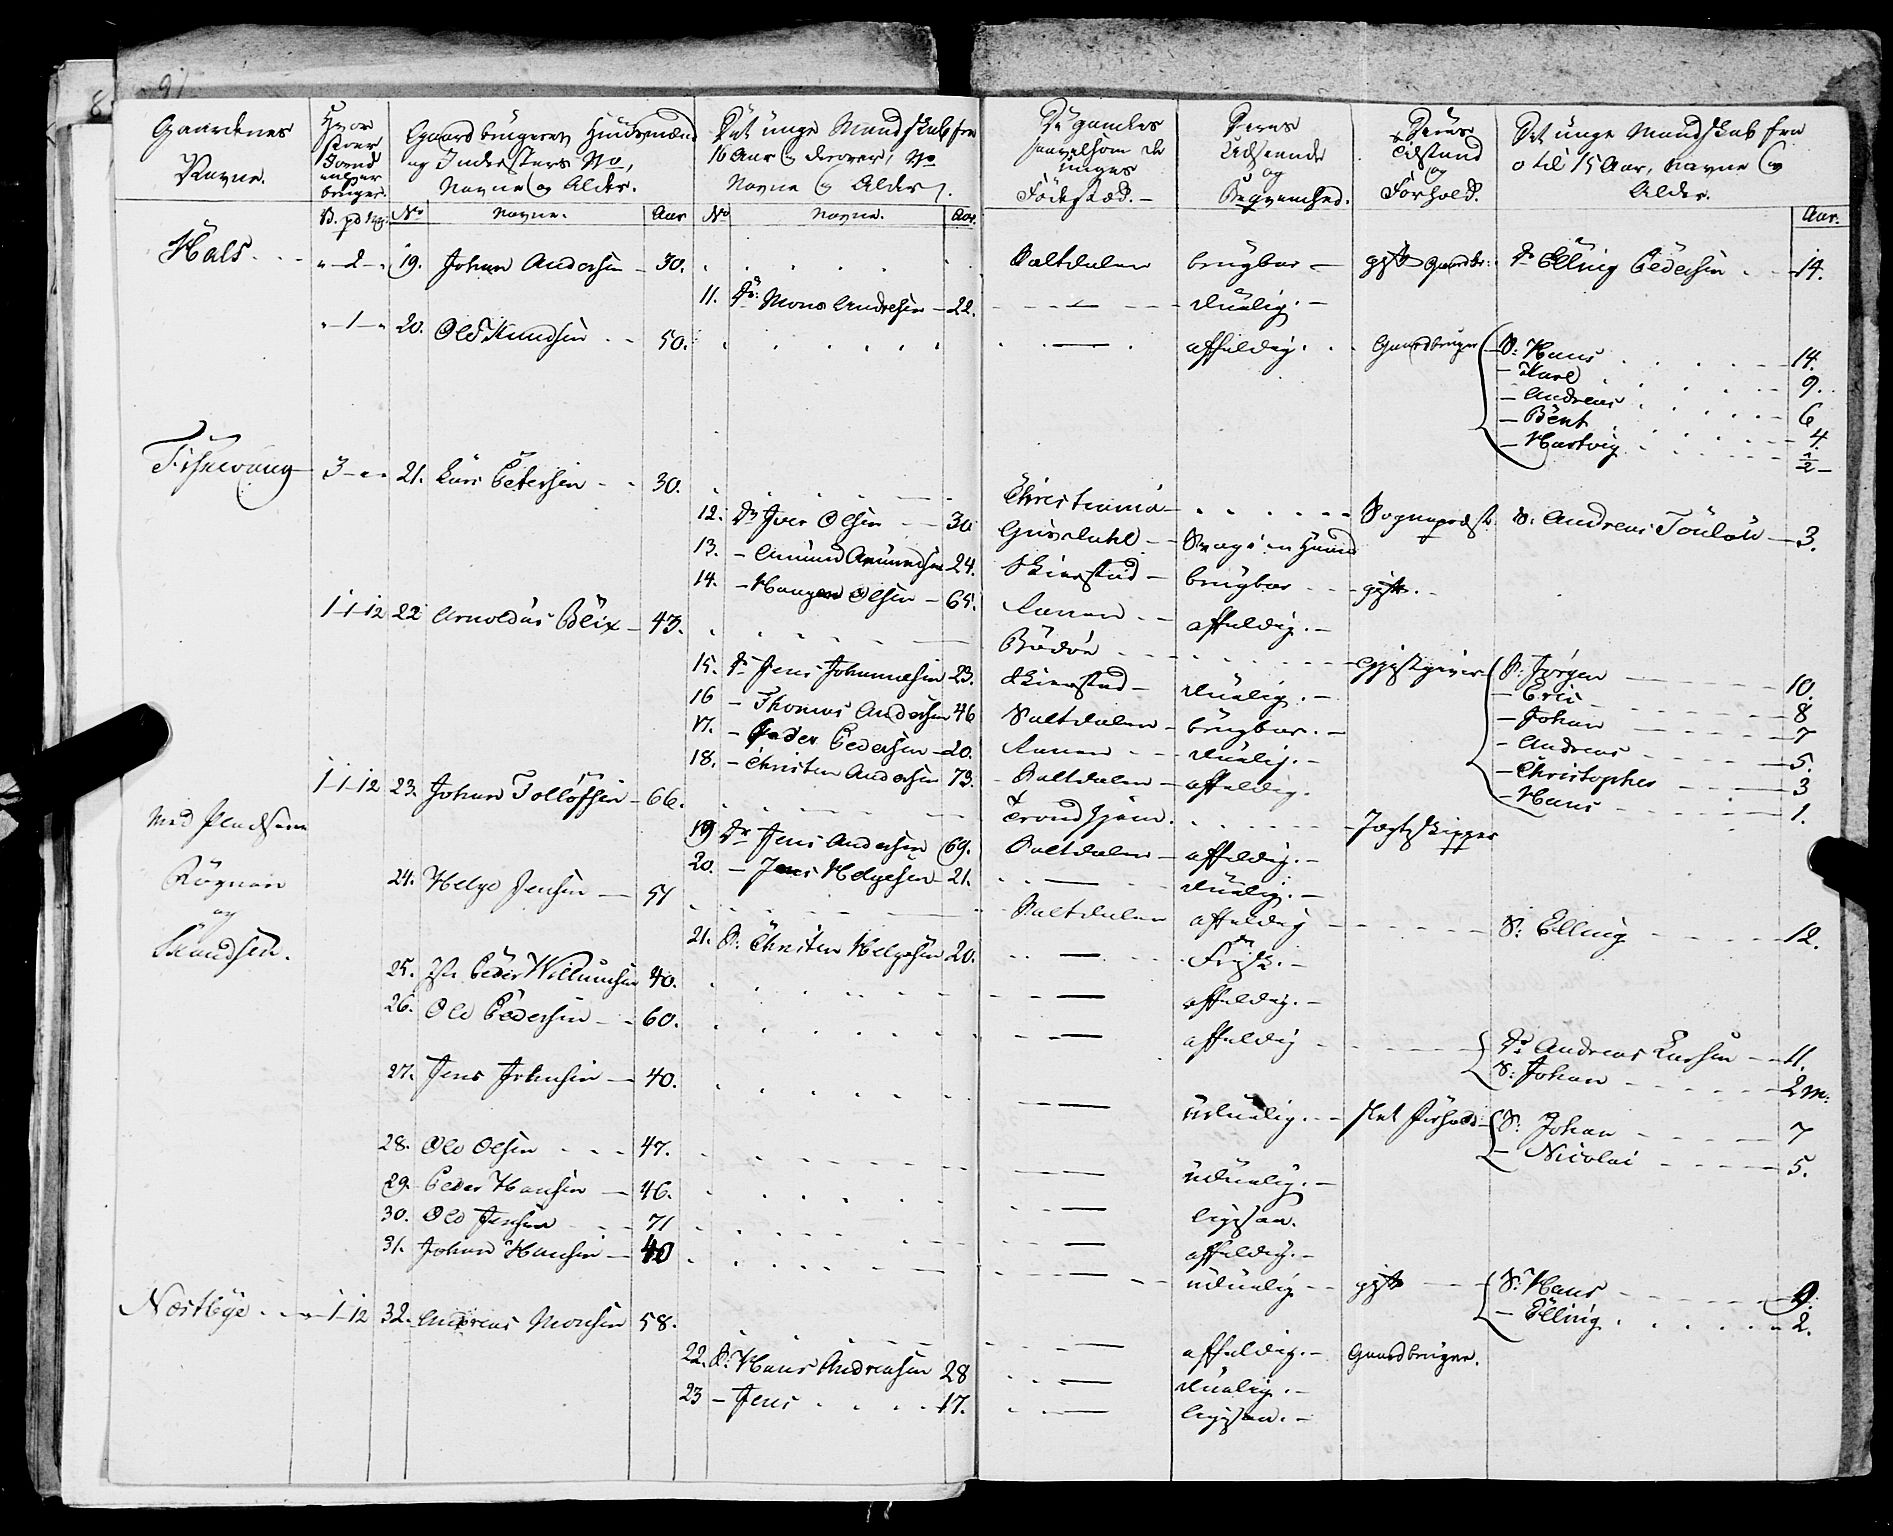 9
8
Gaardenes Navne.
Hvor stoer Jord enhver bruger.
B. pd mk.
Gaardbrugeren Huusmænd og Indersters No, Navne og Alder.
No Navne. Aar
Det unge Mandskab fra 16 Aar og derover, No Navne og Alder.
No Navne. Aar.
De gamles saavelsom de unges Födested.
Deres Udseende og Beqvemhed.
Deres Tilstand og Forhold.
Det unge Mandskab fra 0 til 15 Aar, Navne og Alder.
Aar.
Hals. " 2 " 19. Johan Andersen 30. Saltdalen brugbar gift Gaardbr: Dr Elling Pedersen 14.
11. Dr: Mons Andersen 22. — duelig.
" 1 " 20. Ole Knudsen 50. — affældig. Gaardbruger S: Hans 14.
— Karl 9.
— Andreas 6
— Bent 4.
— Hartvig ½
3 " " 21. Lars Petersen 30. Christiania Sognepræst S: Andreas Touløu 3.
12. Dr Iver Olsen 30 Svag i en Haand
13. — Amund Amundsen 24. Skierstad brugbar gift.
14. — Olsen 65. affældig.
1 1 12 22 Arnoldus Blix 43. Bodöe Gjestgiver S: Jørgen 10.
— Eric 8
— Johan 7
— Andreas 5.
— Christopher 3
— Hans 1.
15. Dr Jens Johannesen 23. Skierstad duelig.
16 — Thomas Andersen 46 Saltdalen brugbar.
17. — Peder Pedersen 20. duelig.
18. — Christen Andersen 73. Saltdalen affældig.
1 1 12 23. Johan Tollöfsen 66. Trondhjem. Jagtskipper
19 Dr Jens Andersen 69. Saltdalen affældig.
20. — Jens Helgesen 21. — duelig.
Med Pladsene
Rögnan
og
Sundsen.
24. Helge Jensen 51 Saltdalen affældig S: Elling 12.
21. S: Christen Helgesen 20. — Frisk.
25. Peder Willumsen 40. — affældig.
26. Ole Pedersen 60. — affældig Dr Andreas Larsen 11.
S: Johan 2 m:
27. Jens Johnsen 40. — uduelig. slet Forhold S: Johan 7
— Nicolai 5.
28. Ole Olsen 47. — uduelig.
29. Peder Hansen 46. —
30. Ole Jensen 71 — affældig.
31. Johan Hansen 40 — uduelig gift S: Hans 9.
— Elling 2.
Næstbye " 1 12 32. Andreas Monsen 58. — affældig. Gaardbruger.
22. S: Hans Andreasen 28 — duelig.
23 — Jens 17. —